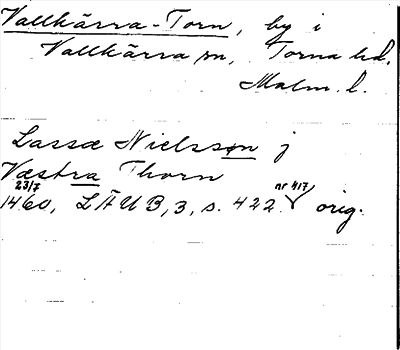 Vallkärra-Torn, by i
Vallkärra sn, Torna hd.
Malm. l.
Lassæ Nielsson j
Væstra Thorn
23/7 1460, LÄUB, 3, s. 422. nr 417 orig.